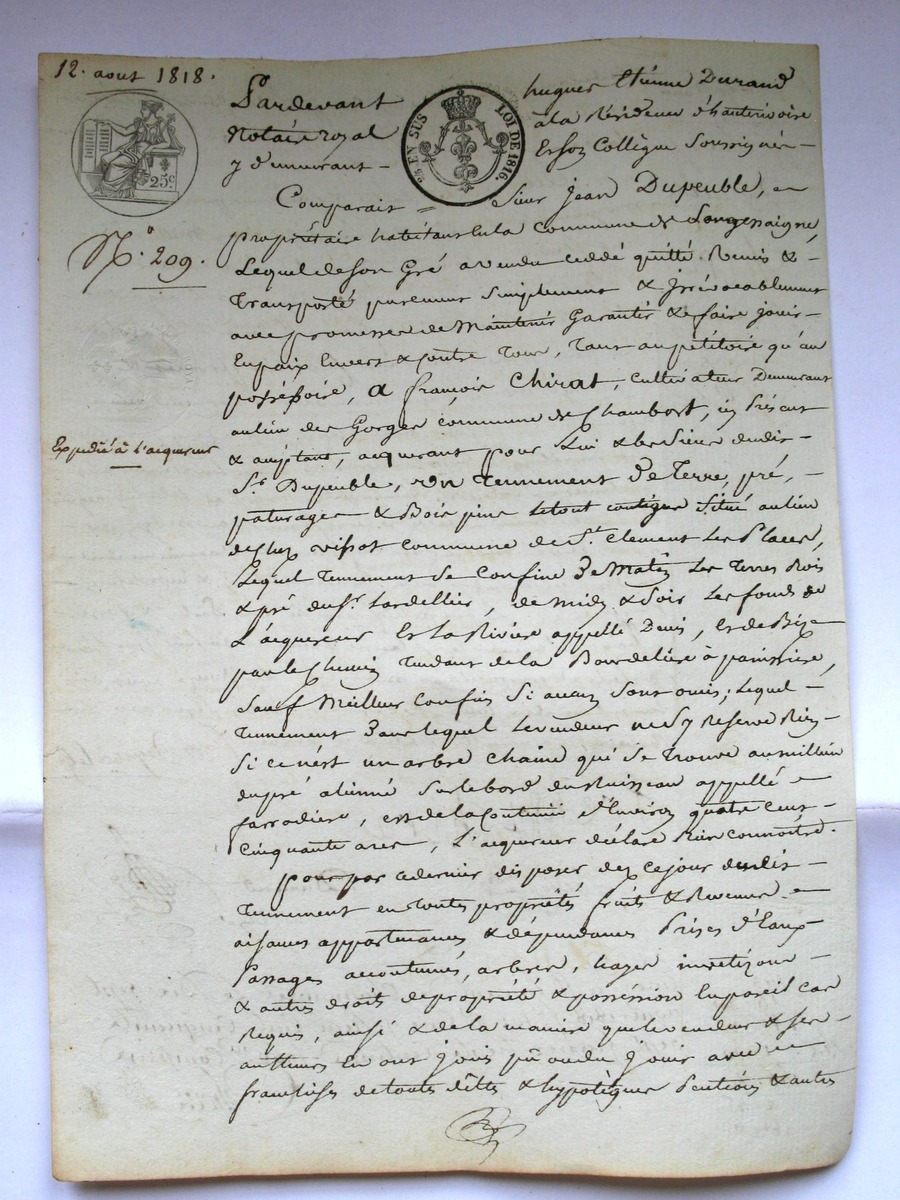 12. aout 1818.
25 EN SUS LOI DE 1816.
25.c
N.o 209.
Expedié à L'acquereur
Pardevant hugues Etiénne Durand
Notaire royal à la Résidence d'hauterivoire
y demeurant - Et son Collègue Soussignés -
Comparait = Sieur Jean Dupeuble,
propriétaire habitant en la Commune de Longessaigne,
Lequel de son Gré a vendu ceddé quitté Remis &
Transporté purement Simplement & Irrévocablement
avec promesse de Maintenir Garantir & faire jouir -
En paix Envers & contre Tous, Tant au pétitoire qu'au
posséssoire, a françois Chirat, cultivateur Demeurant
au lieu des Gorges commune de Chambost, ici Présent
& acceptant, acquerant pour Lui & les Siens dudit -
Sr. Dupeuble, un Tennement de Terre, pré, -
paturages & Bois pins Le tout contigue Situé au lieu
de Chez commune de St. Clement Les Places,
Lequel Tennement Se Confine De Matin Les Terres Bois
& pré du Sr. Lardellier, de midi & Soir Les fonds de
L'acquereur Et La Riviére appellé Denis, Et de Bize
par le Chemin Tendant de la Bourdeliére à panissiére,
Sauf Meilleur Confins Si aucun Sont omis; Lequel -
Tennement Dans lequel Le vendeur ne S'y Reserve Rien
Si ce nést un arbre Chaine qui Se Trouve au milieu
du pré aliénné Sur le bord du Ruisseau appellé
farradiere, est de la Contenue d'Environ quatre Cent -
Cinquante ares, L'acquereur déclare Bien connoitre.
pour par ce dernier disposer dez ce jour dudit -
Tennement en Toutes propriétés fruits & Revenus
aisances appartenances & dépendances Prises d'Eaux
Passages accoutumés, arbres, hayes investizons -
& autres droit de propriété & posséssion En pareil cas
Requis, ainsi & de la maniere que le vendeur & ses
autheurs En ont jouis pû ou du jouir avec
franchises de toutes dêttes & hypotèques & autres